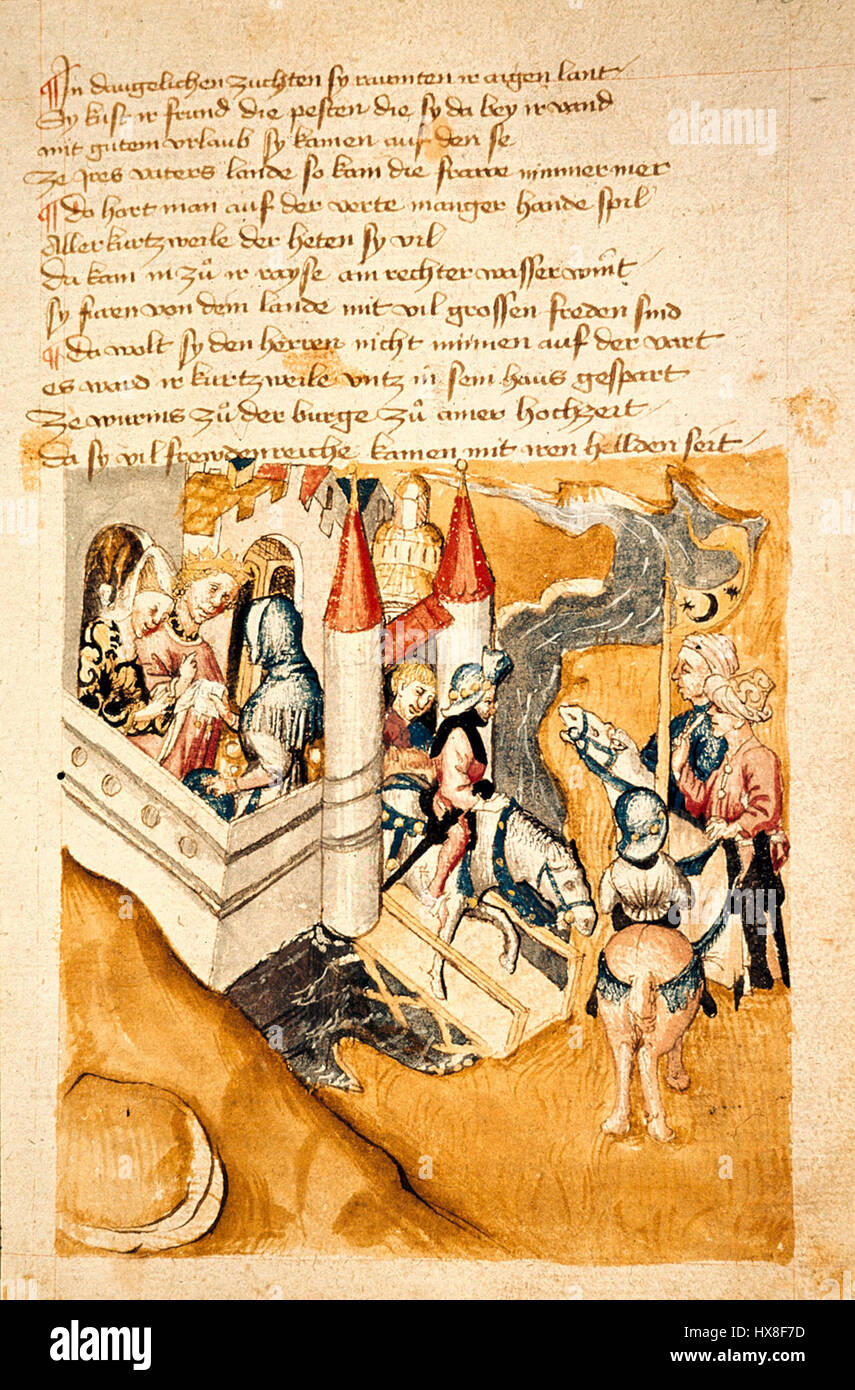 ¶ In daugelichen zuchten sy raumten ir aigen lant
Sy kust ir frund die pesten die sy da bey ir vand
mit gutem vrlaub sy kamen auf den se
ze ires vaters lande so kam die frawe nimmer mer
¶ Do hort man auf der verte manger hande spil
Aller kurtzweile der heten sy vil
da kam in zů ir rayse am rechter wasser wint
sy furen von dem lande mit vil grossen freden sind
¶ da wolt sy den herren nicht minnen auf der vart
es ward ir kurtzweile vntz in sein haus gespart
Ze wurms zů der burge zů ainer hochzeit
da sy vil frewdenreiche kamen mit iren hellden seit
alamy
a
alamy stock photo
HX8F7D
www.alamy.com